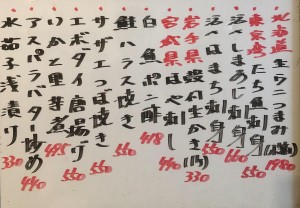 北海道 生ウニつまみ 1980
東京湾 たち魚刺身 550
活〆しまあじ刺身 660
活〆まも刺 550
岩手県 殻付生かき(1ヶ) 330
宮城県 ほや刺し 440
白魚ポン酢 418
鮭ハラス焼き 550
サザエつぼ焼き 550
エボダイ唐揚げ 550
いかと里芋煮 495
アスパラバター炒め 440
水茄子浅漬け 330